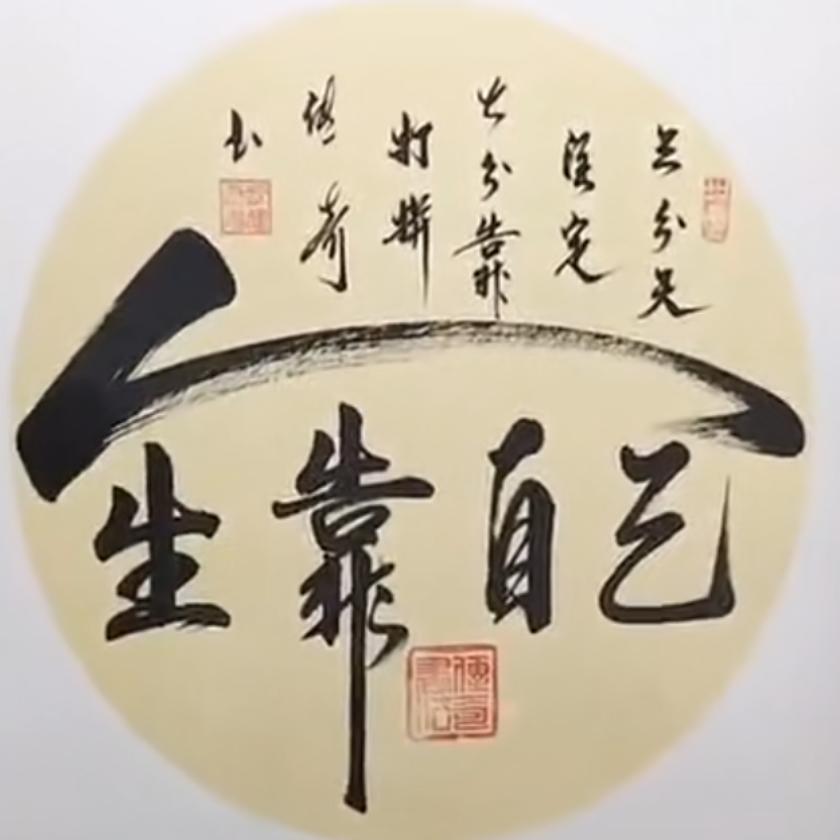 三分天
注定
七分靠
打拼
奇
书
人
生靠自己